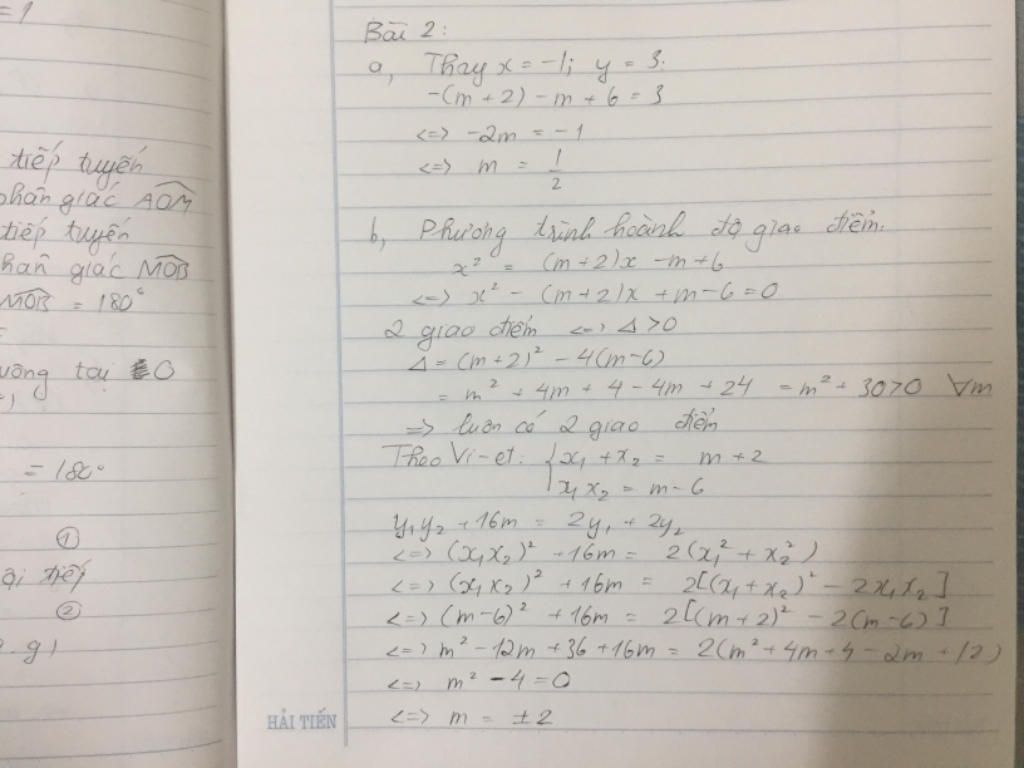 = 1
tiếp tuyến
phân giác AOM
tiếp tuyến
MOB
MOB = 180°
tại O
= 180°
①
tiếp
②
g)
Bài 2:
a, Thay x = -1; y = 3.
-(m + 2) - m + 6 = 3
<=> -2m = -1
<=> m = 1/2
b, Phương trình hoành độ giao điểm:
x² = (m+2)x - m + 6
<=> x² - (m+2)x + m - 6 = 0
2 giao điểm <=> Δ > 0
Δ = (m+2)² - 4(m-6)
= m² + 4m + 4 - 4m + 24 = m² + 30 > 0 ∀m
=> luôn có 2 giao điểm
Theo Vi-et: { x₁ + x₂ = m + 2
x₁x₂ = m - 6
y₁y₂ + 16m = 2y₁ + 2y₂
<=> (x₁x₂)² + 16m = 2(x₁² + x₂²)
<=> (x₁x₂)² + 16m = 2[(x₁+x₂)² - 2x₁x₂]
<=> (m-6)² + 16m = 2[(m+2)² - 2(m-6)]
<=> m² - 12m + 36 + 16m = 2(m² + 4m + 4 - 2m + 12)
<=> m² - 4 = 0
<=> m = ±2
HẢI TIẾN